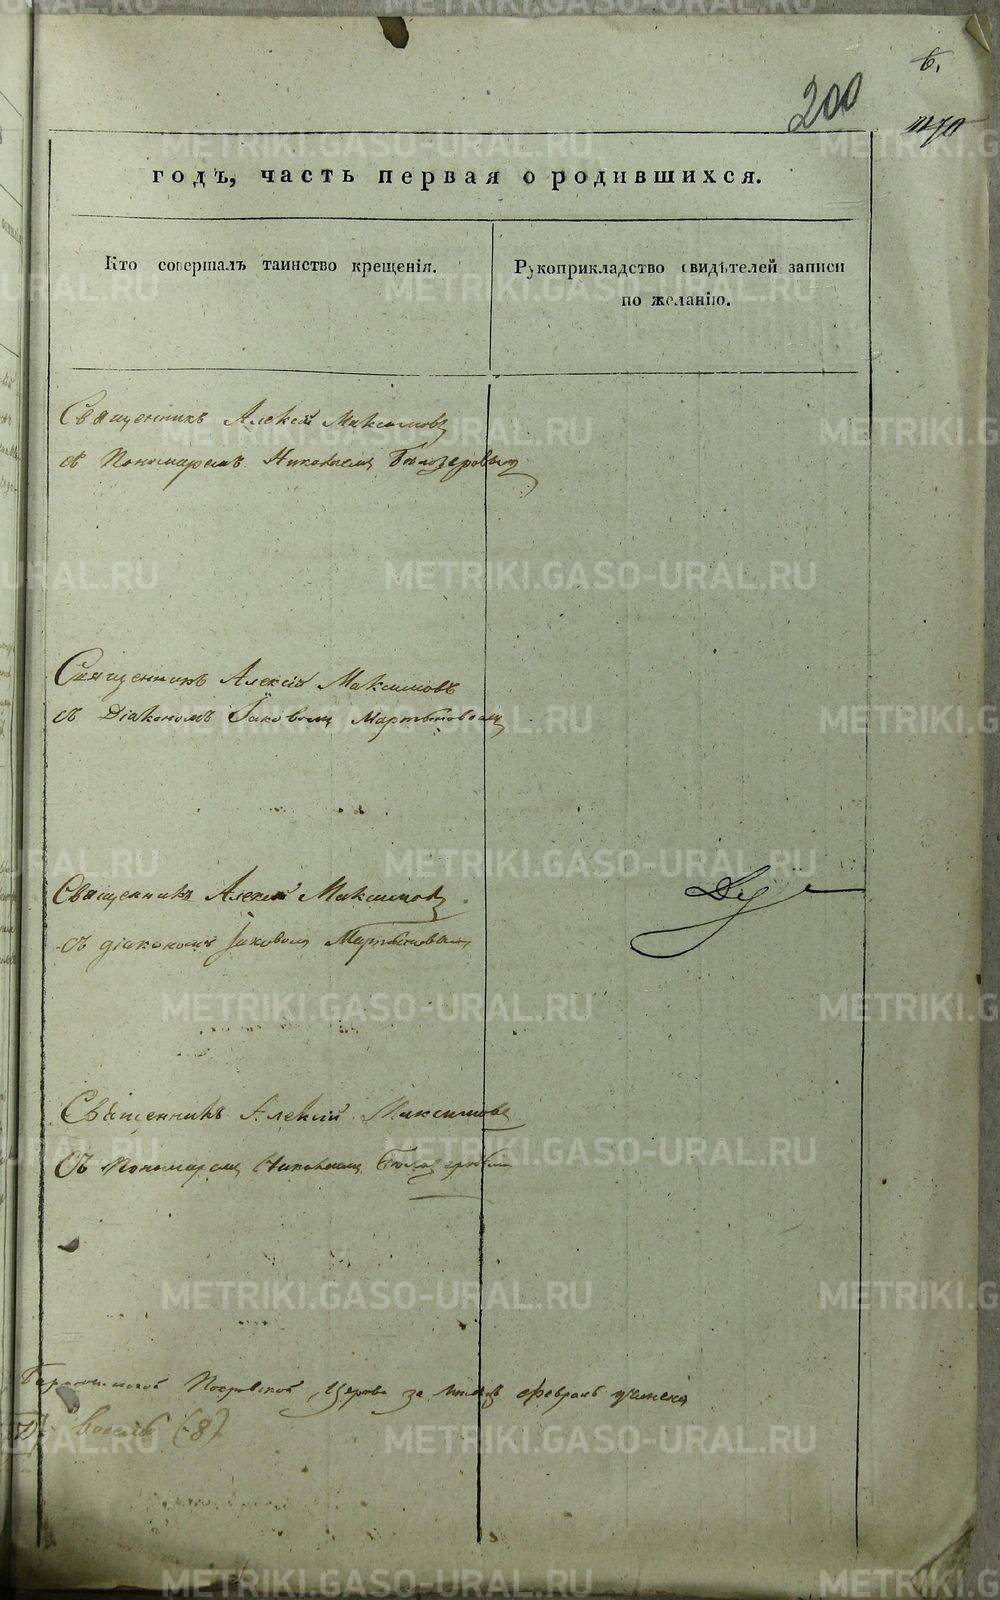 6.
200
годъ, часть первая о родившихся.
Кто совершалъ таинство крещенія.
Рукоприкладство свидѣтелей записи
по желанію.
Священникъ Алексій Максимовъ
съ Пономаремъ Николаемъ Бѣлозеровымъ
Священникъ Алексій Максимовъ
съ Діакономъ Іаковомъ Мартыновымъ
Священникъ Алексій Максимовъ
съ діакономъ Іаковомъ Мартыновымъ
Священникъ Алексій Максимовъ
Съ Пономаремъ Николаемъ Бѣлозеровымъ
Покровской Церкви за февраль
(8)
METRIKI.GASO-URAL.RU